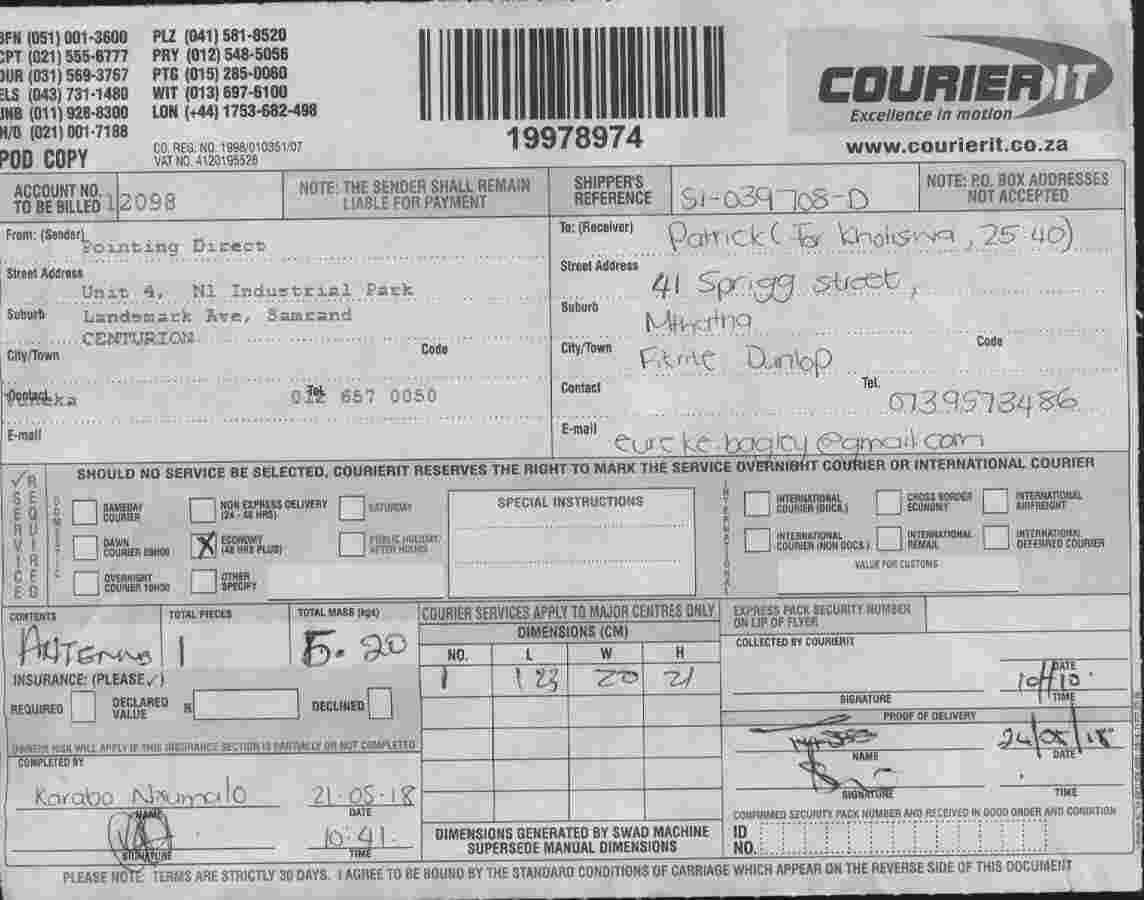 BFN (051) 001-3600 PLZ (041) 581-8520
CPT (021) 555-6777 PRY (012) 548-5056
DUR (031) 569-3767 PTG (015) 285-0060
ELS (043) 731-1480 WIT (013) 697-6100
JNB (011) 928-8300 LON (+44) 1753-682-498
H/O (021) 001-7188
POD COPY
CO. REG. NO. 1998/010351/07
VAT NO. 4120195528
19978974
COURIER IT
Excellence in motion
www.courierit.co.za
ACCOUNT NO. TO BE BILLED 12098
NOTE: THE SENDER SHALL REMAIN LIABLE FOR PAYMENT
SHIPPER'S REFERENCE SI-039708-D
NOTE: P.O. BOX ADDRESSES NOT ACCEPTED
From: (Sender) Pointing Direct
Street Address
Unit 4, N1 Industrial Park
Suburb Landsmark Ave, Samrand
CENTURION
City/Town Code
Contact Tel. 012 657 0050
E-mail
To: (Receiver) Patrick (For Kholiswa, 25:40)
Street Address 41 Sprigg street,
Suburb Mthatha
City/Town Code
Dunlop
Contact Tel. 0739573486
E-mail @gmail.com
SHOULD NO SERVICE BE SELECTED, COURIERIT RESERVES THE RIGHT TO MARK THE SERVICE OVERNIGHT COURIER OR INTERNATIONAL COURIER
✓ SERVICE REQUIRED
DOMESTIC
SAMEDAY COURIER
NON EXPRESS DELIVERY (24 - 48 HRS)
SATURDAY
DAWN COURIER 09H00
X ECONOMY (48 HRS PLUS)
PUBLIC HOLIDAY AFTER HOURS
OVERNIGHT COURIER 10H30
OTHER SPECIFY
SPECIAL INSTRUCTIONS
INTERNATIONAL
INTERNATIONAL COURIER (DOCS.)
CROSS BORDER ECONOMY
INTERNATIONAL AIRFREIGHT
INTERNATIONAL COURIER (NON DOCS.)
INTERNATIONAL REMAIL
INTERNATIONAL DEFERRED COURIER
VALUE FOR CUSTOMS
CONTENTS
Antenna
TOTAL PIECES
1
TOTAL MASS (kgs)
5.20
INSURANCE: (PLEASE ✓)
REQUIRED DECLARED VALUE R DECLINED
OWNERS RISK WILL APPLY IF THIS INSURANCE SECTION IS PARTIALLY OR NOT COMPLETED
COMPLETED BY
Karabo Nxumalo 21-05-18
NAME DATE
10:41
SIGNATURE TIME
COURIER SERVICES APPLY TO MAJOR CENTRES ONLY
DIMENSIONS (CM)
NO. L W H
1 123 20 21
DIMENSIONS GENERATED BY SWAD MACHINE SUPERSEDE MANUAL DIMENSIONS
EXPRESS PACK SECURITY NUMBER ON LIP OF FLYER
COLLECTED BY COURIERIT
DATE
SIGNATURE TIME
PROOF OF DELIVERY
24/05/18
NAME DATE
SIGNATURE TIME
CONFIRMED SECURITY PACK NUMBER AND RECEIVED IN GOOD ORDER AND CONDITION
ID NO.
PLEASE NOTE: TERMS ARE STRICTLY 30 DAYS. I AGREE TO BE BOUND BY THE STANDARD CONDITIONS OF CARRIAGE WHICH APPEAR ON THE REVERSE SIDE OF THIS DOCUMENT